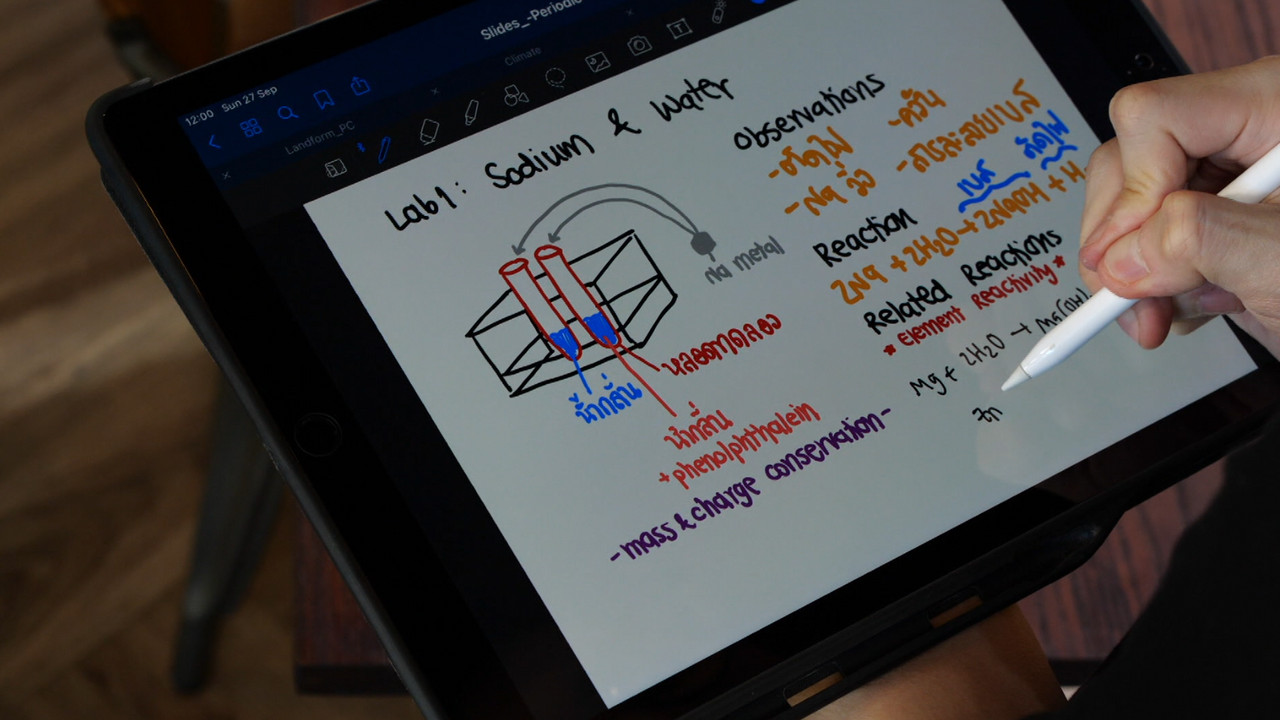 12:00 Sun 27 Sep
Slides_-Periodic
Climate
Landform_PC
Lab 1: Sodium & Water
na metal
หลอดทดลอง
น้ำกลั่น
น้ำกลั่น
+ phenolphthalein
- mass & charge conservation -
Observations
- ติดไฟ
- ควัน
- Na วิ่ง
- สารละลายเบส
Reaction
เบส
ติดไฟ
2Na + 2H2O → 2NaOH + H
Related Reactions
* element Reactivity *
Mg + 2H2O → Mg(OH)
Zn